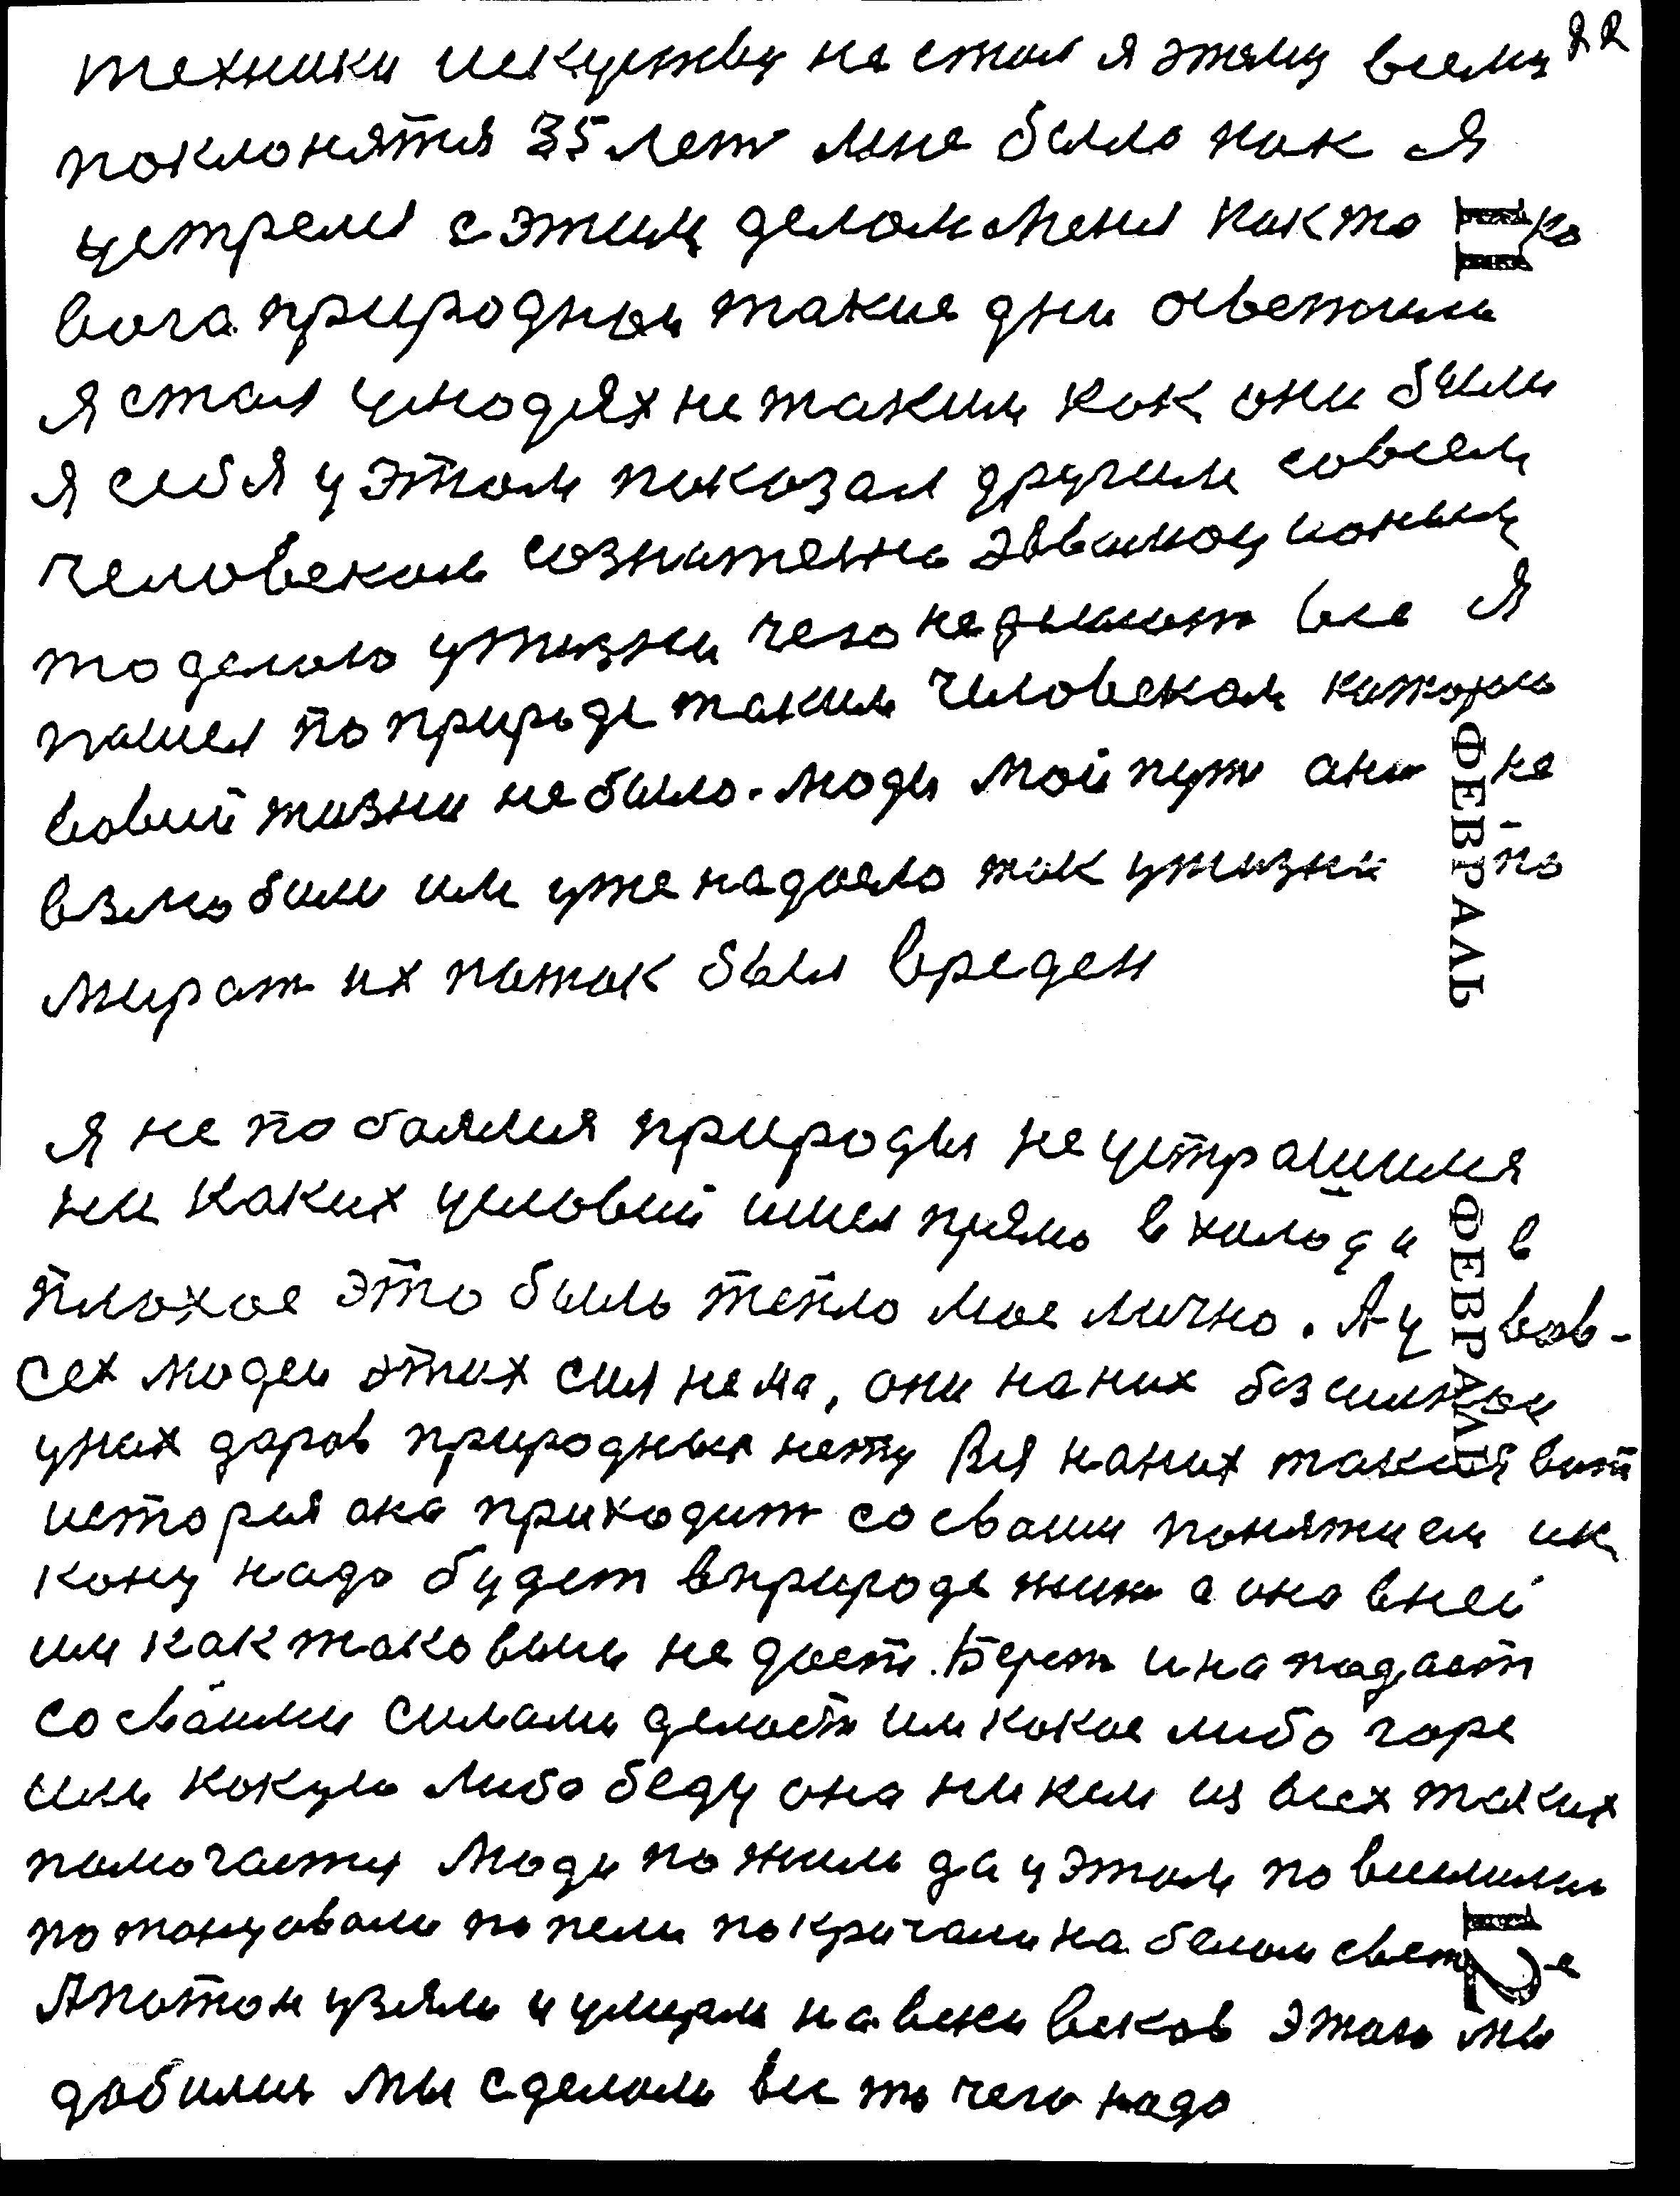 техники искуству не стал я этому всему 22
поклонятся 35 лет мне было как я
устрелся с этим делом меня как то ко 11
вога природные такие дни осветили
я стал улюдях не таким как они были
я себя у этом показал другим совсем
человеком сознателно эвалюционым
то делаю ужизни чего не думают все я
пашел по природе таким человеком каторого
вовсей жизни небыло. люди мой пут ани не
взлюбили им уже надоело так ужизни по
мират их паток был вреден
ФЕВРАЛЬ
я не побаялся природы не устрашился
ни каких условий шшел прямо в холод и в
плохое это было тепло мое лично. А у вов-
сех людей этих сил нема, они на них безсилные
уних даров природных нету Вся наних такая вот
история ана приходит со своим понятием ик
кому надо будет вприроде жит а она вней
им как таковым не дает. Берет и нападает
со своими силами делает им какое либо горе
или какую либо беду она ни кем из всех таких
памогаету люди пожили да у этом повеселили
потанцовали попели покричали на белом свете
Апотом узяли и умерли на веки веков этаго мы
добилис мы сделали все то чего надо
ФЕВРАЛЬ
12